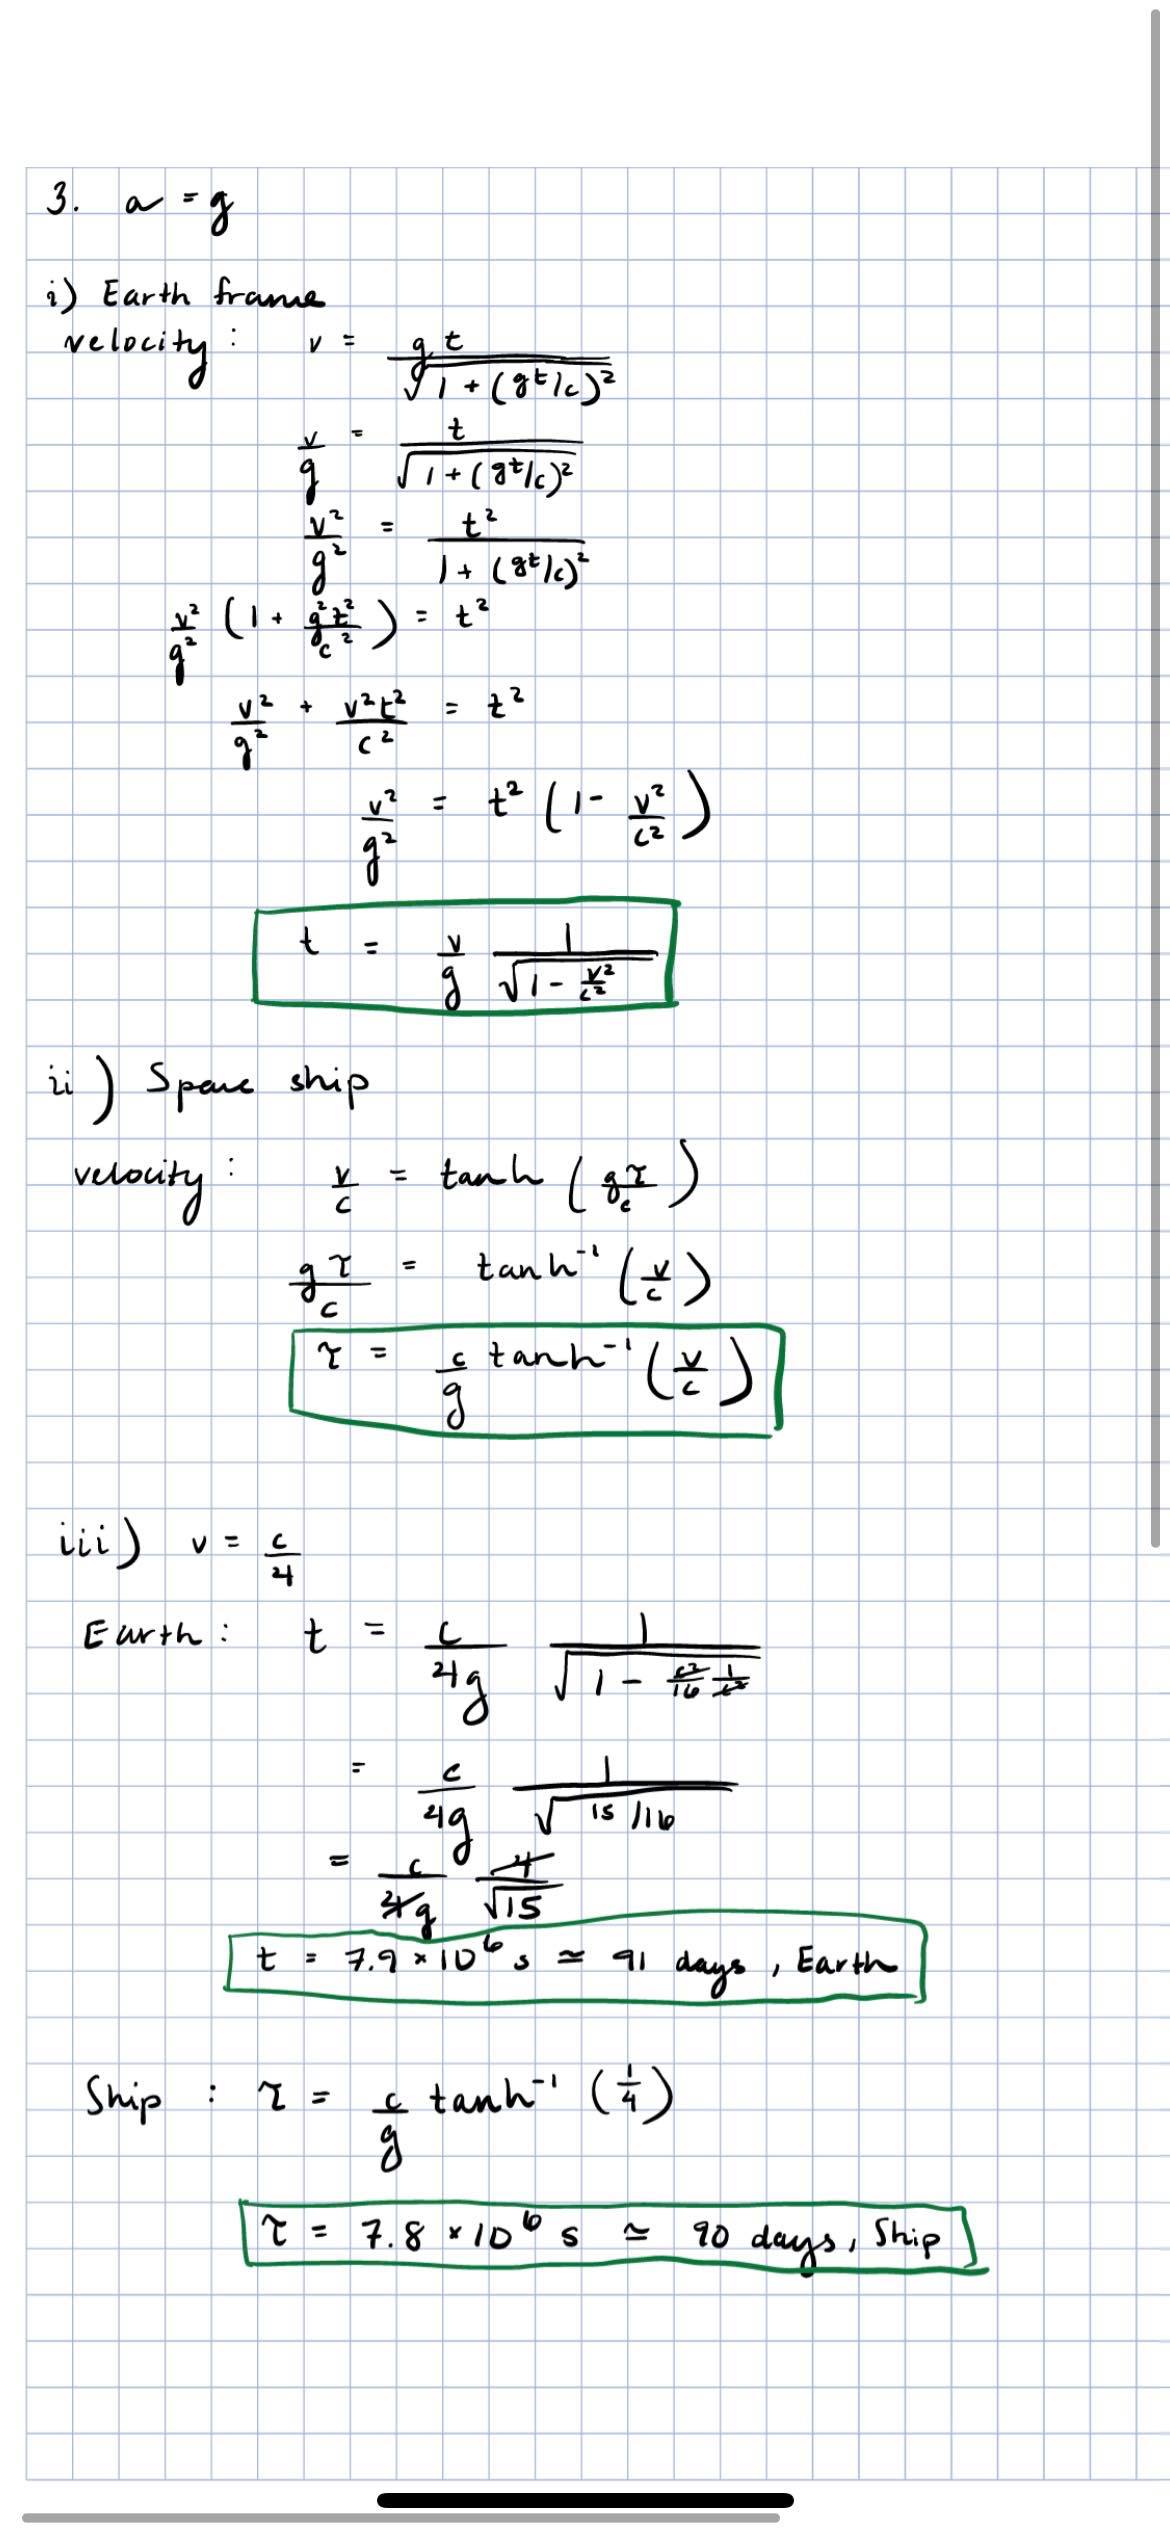 3. a = g
i) Earth frame
velocity : v = gt / √(1 + (gt/c)²)
v/g = t / √(1 + (gt/c)²)
v²/g² = t² / (1 + (gt/c)²)
v²/g² (1 + g²t²/c²) = t²
v²/g² + v²t²/c² = t²
v²/g² = t² (1 - v²/c²)
t = v/g 1/√(1 - v²/c²)
ii) Space ship
velocity : v/c = tanh (gτ/c)
gτ/c = tanh⁻¹ (v/c)
τ = c/g tanh⁻¹ (v/c)
iii) v = c/4
Earth : t = c/4g 1/√(1 - c²/16 1/c²)
= c/4g 1/√(15/16)
= c/4g 4/√15
t = 7.9 × 10⁶ s ≃ 91 days, Earth
Ship : τ = c/g tanh⁻¹ (1/4)
τ = 7.8 × 10⁶ s ≃ 90 days, Ship